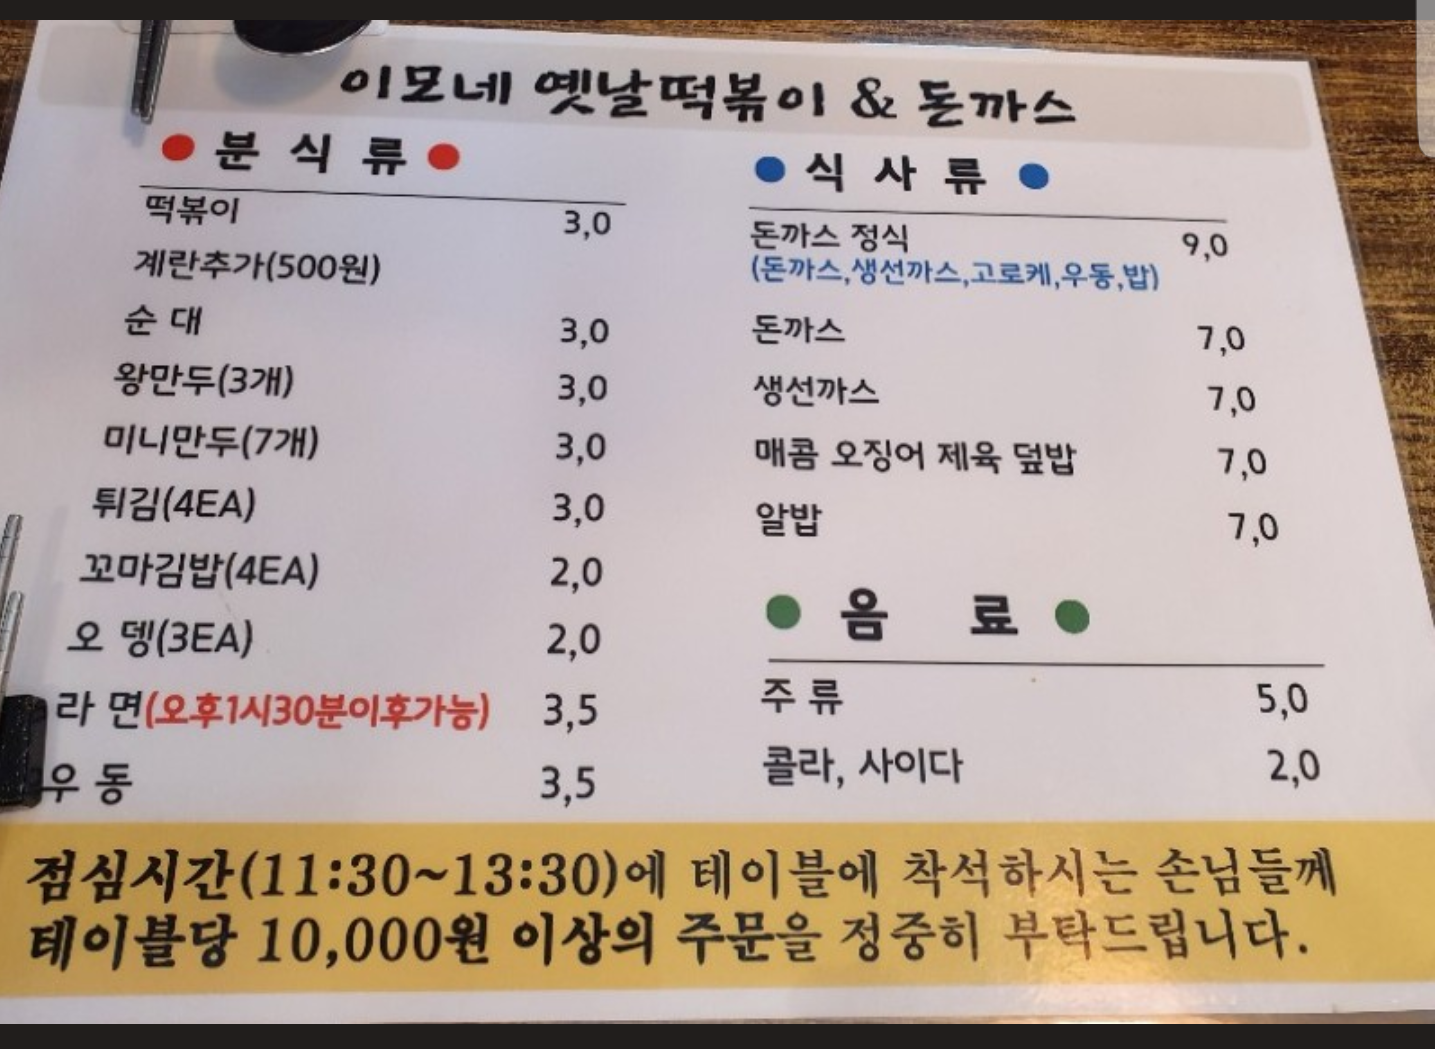 이모네 옛날떡볶이 & 돈까스
● 분 식 류 ●
떡볶이 3,0
계란추가(500원)
순 대 3,0
왕만두(3개) 3,0
미니만두(7개) 3,0
튀김(4EA) 3,0
꼬마김밥(4EA) 2,0
오 뎅(3EA) 2,0
라 면(오후1시30분이후가능) 3,5
우 동 3,5
● 식 사 류 ●
돈까스 정식 9,0
(돈까스,생선까스,고로케,우동,밥)
돈까스 7,0
생선까스 7,0
매콤 오징어 제육 덮밥 7,0
알밥 7,0
● 음 료 ●
주 류 5,0
콜라, 사이다 2,0
점심시간(11:30~13:30)에 테이블에 착석하시는 손님들께
테이블당 10,000원 이상의 주문을 정중히 부탁드립니다.